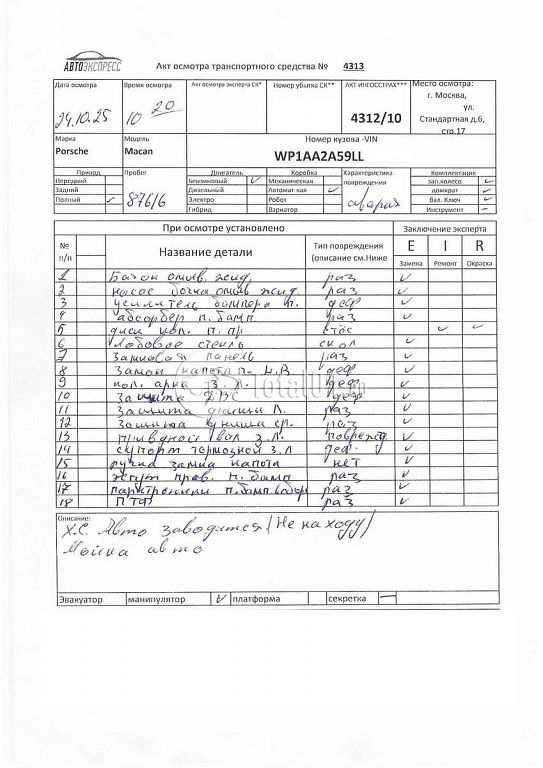 АВТОЭКСПРЕСС
Акт осмотра транспортного средства № 4313
Дата осмотра Время осмотра Акт осмотра эксперта СК* Номер убытка СК** АКТ ИНГОССТРАХ*** Место осмотра:
24.10.25 10 20 4312/10 г. Москва,
ул.
Стандартная д.6,
стр.17
Марка Модель Номер кузова -VIN
Porsche Macan WP1AA2A59LL
Привод Пробег Двигатель Коробка Характеристика повреждения Комплектация
Передний 87616 Бензиновый ✓ Механическая авария зап.колесо ✓
Задний Дизельный Автомат-кая ✓ домкрат ✓
Полный ✓ Электро Робот бал. Ключ ✓
Гибрид Вариатор Инструмент –
При осмотре установлено Заключение эксперта
№ п/п Название детали Тип повреждения (описание см.Ниже E I R
Замена Ремонт Окраска
1 Бачок омыв. жид. раз ✓
2 насос бочка омыв жид. раз ✓
3 усилитель бампера п. деф ✓
4 абсорбер п. бамп. раз ✓
5 диск кол. п. пр ✓ ✓
6 Лобовое стекло скол ✓
7 Замковая панель раз ✓
8 Замок капота п. деф ✓
9 кол. арка з. л. деф ✓
10 Защита ДВС деф ✓
11 Защита днища Л. раз ✓
12 Защита днища ср. раз ✓
13 приводной вал з.л. поврежд. ✓
14 супорт тормозной з.л деф. ✓
15 ручка замка капота нет ✓
16 жгут пров. п. бамп раз ✓
17 парктроники п.бамп. раз ✓
18 ПТФ раз ✓
Описание:
Х.С. Авто заводится (Не на ходу)
Мойка авто
Эвакуатор манипулятор ✓ платформа секретка –